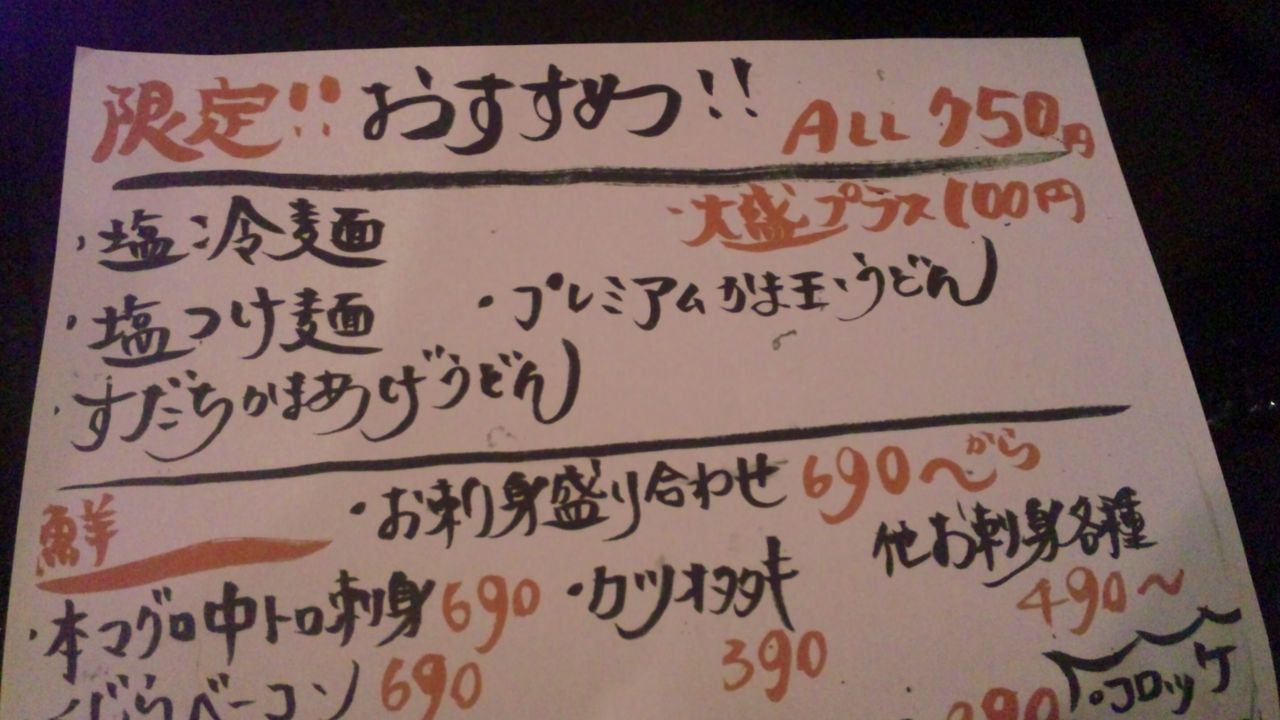 限定!! おすすめっ!! ALL 750円
・大盛プラス100円
・塩冷麺
・塩つけ麺 ・プレミアムかま玉うどん
・すだちかまあげうどん
鮮 ・お刺身盛り合わせ 690〜から
他お刺身各種 490〜
・本マグロ中トロ刺身 690 ・カツオタタキ 390
くじらベーコン 690
・コロッケ